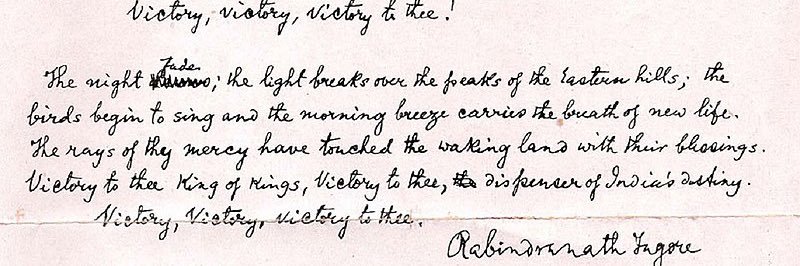 Victory, victory, victory to thee!
Fades
The night; the light breaks over the peaks of the Eastern hills; the
birds begin to sing and the morning breeze carries the breath of new life.
The rays of thy mercy have touched the waking land with their blessings.
Victory to thee King of Kings, Victory to thee, the dispenser of India's destiny.
Victory, Victory, victory to thee.
Rabindranath Tagore